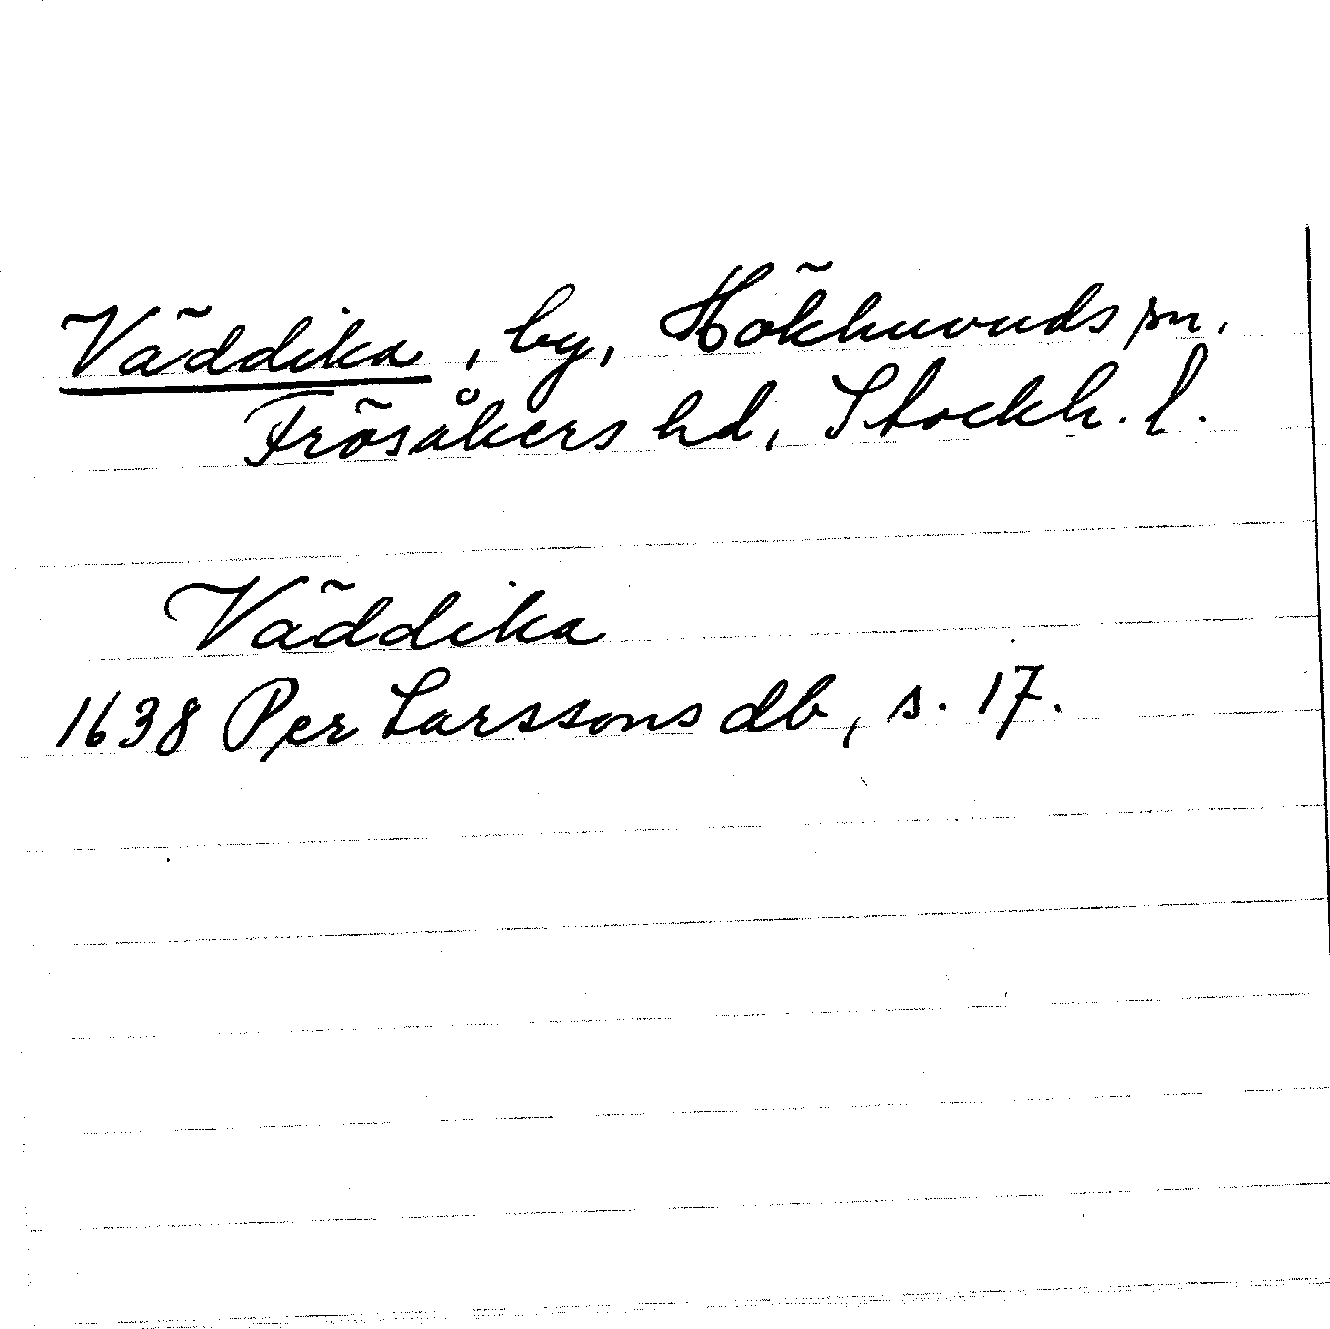 Väddika, by, Hökhuvuds sn.
Frösåkers hd, Stockh. l.
Väddika
1638 Per Larssons db, s. 17.